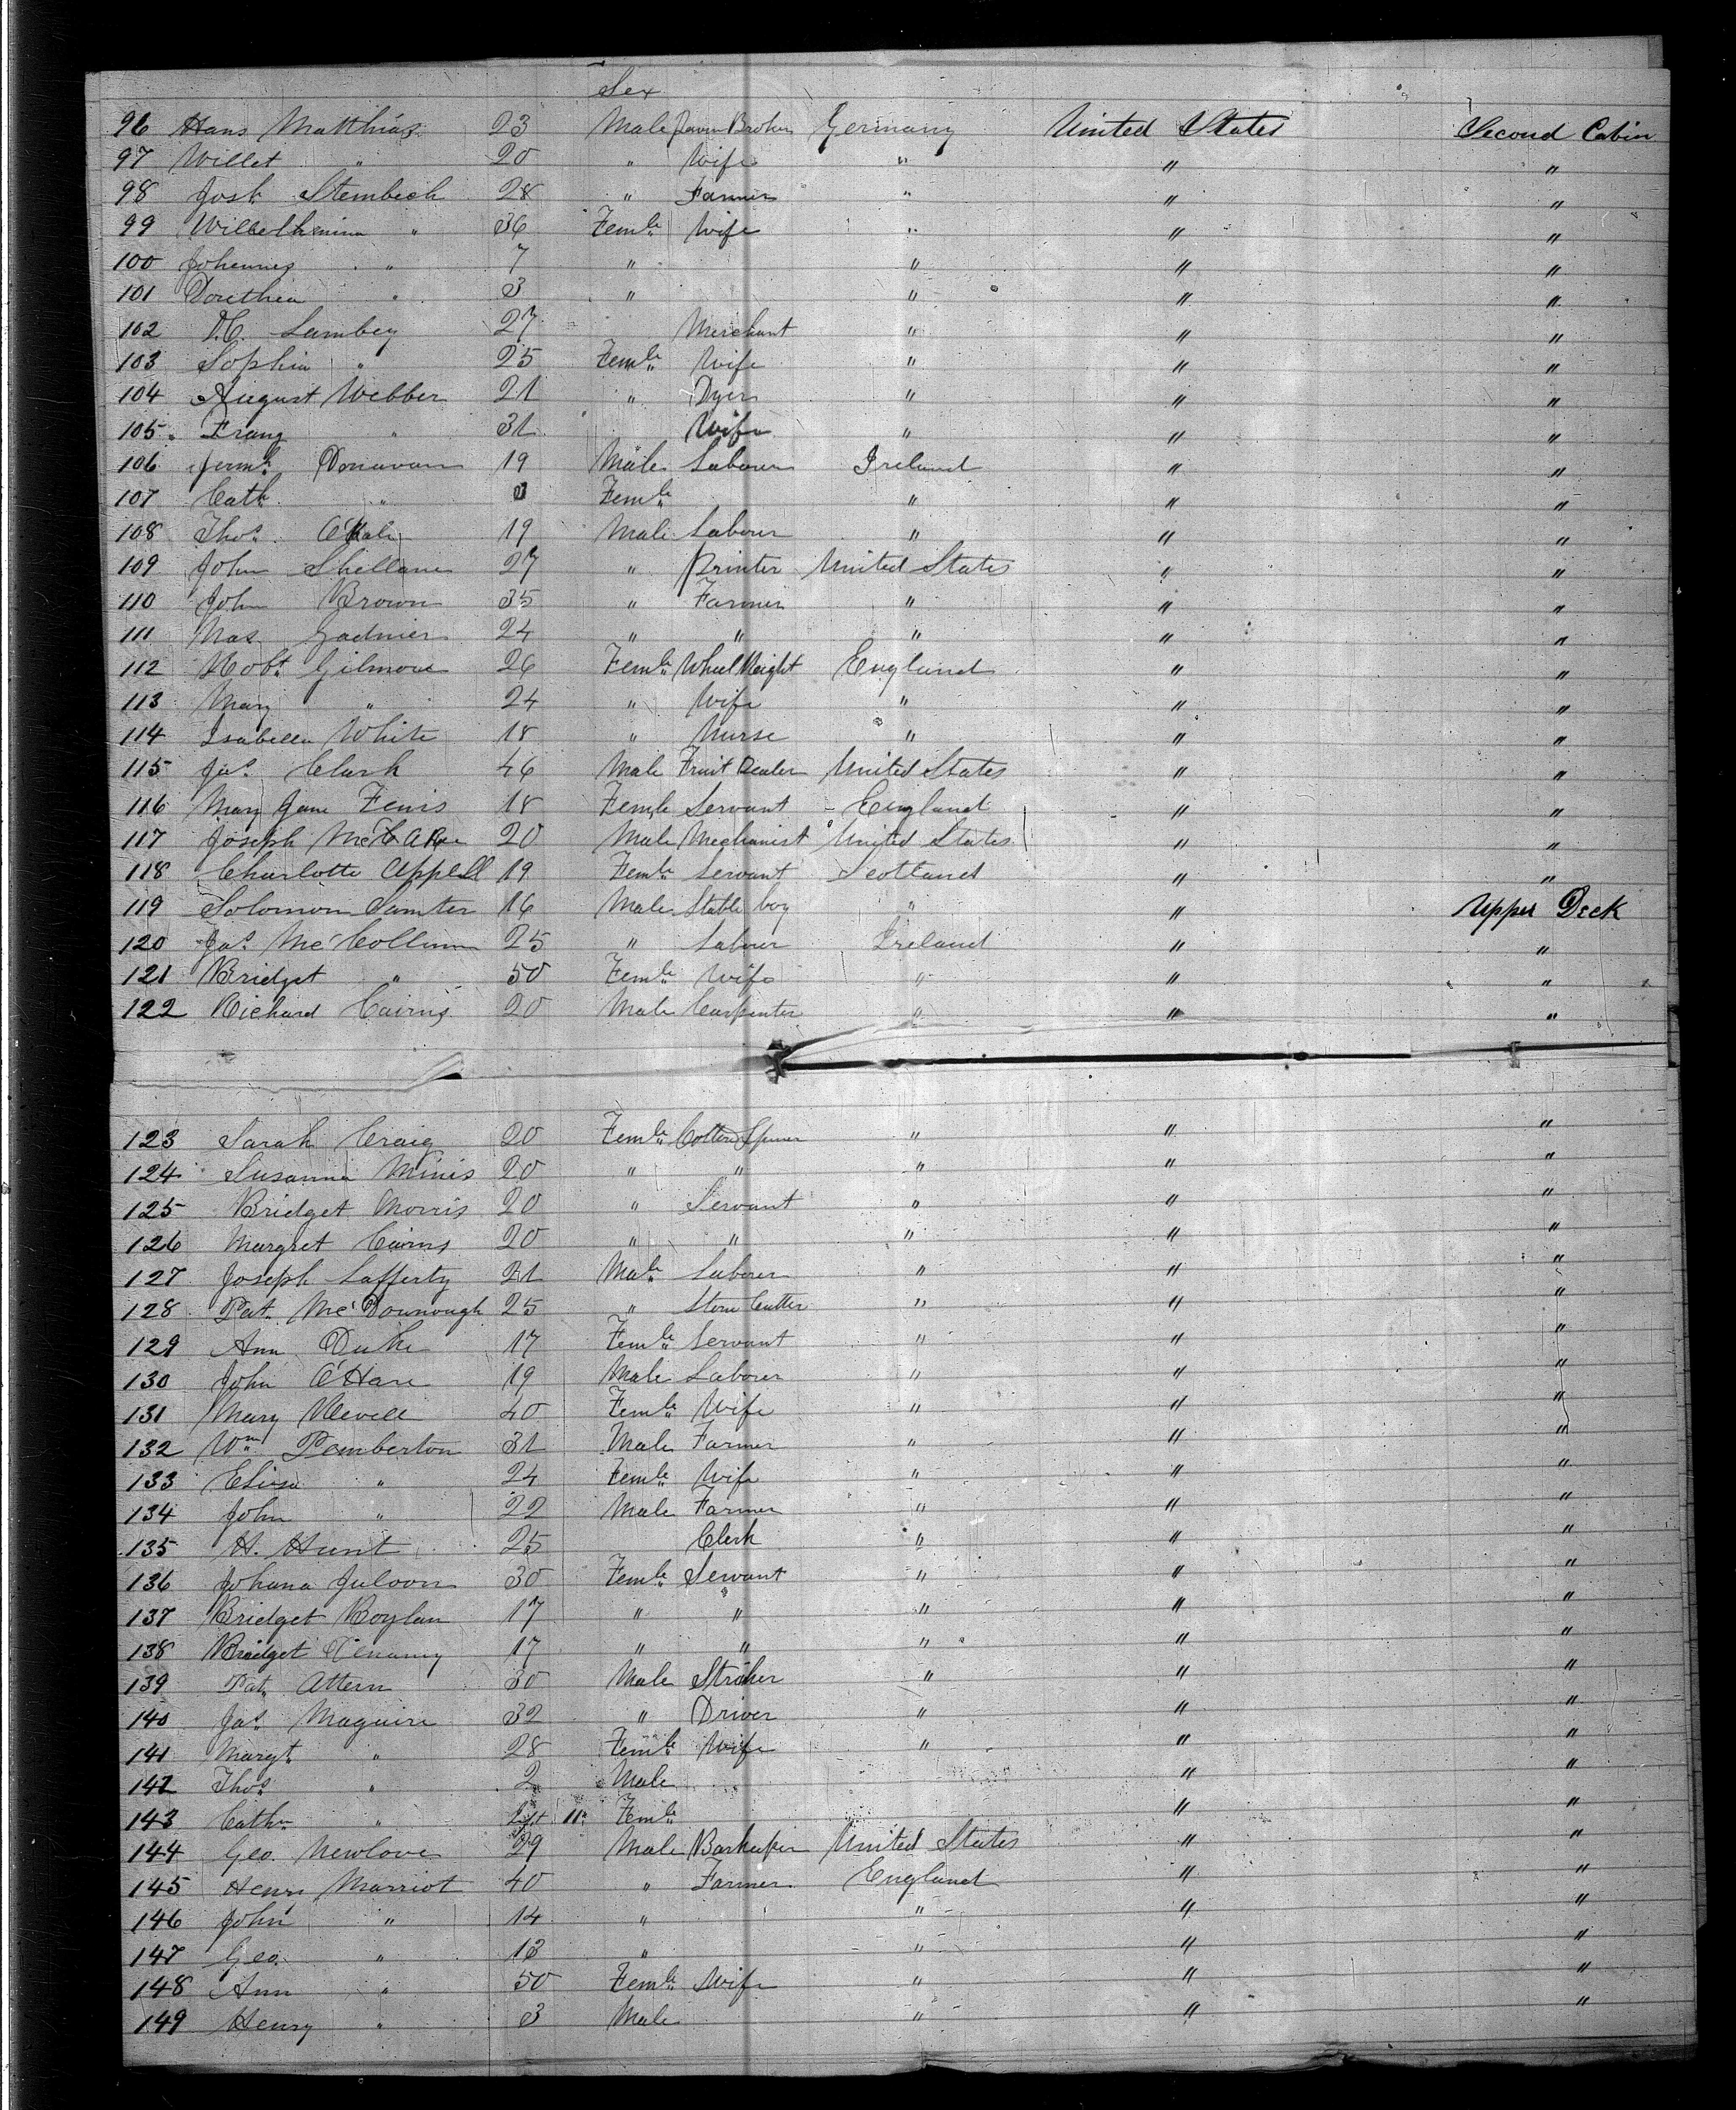 Sex
96 Hans Matthias 23 Male Pawn Broker Germany United States Second Cabin
97 Willet " 20 " Wife " " "
98 Josh Stembech 28 " Farmer " " "
99 Willelhemina " 36 Femle Wife " " "
100 Johennes " 7 " " " "
101 Dorethea " 3 " " " "
102 Lambey 27 Merchant " " "
103 Sophia " 25 Femle Wife " " "
104 August Webber 21 " Dyer " " "
105 Franz " 31 Wife " " "
106 Jermh Donavan 19 Male Laborer Ireland " "
107 Cath " Femle " " "
108 Thos 19 Male Laborer " " "
109 John Shellane 27 " Printer United States " "
110 John Brown 35 " Farmer " " "
111 Gadnier 24 " " " " "
112 Robt Gilmore 26 Femle Wheel Wright England " "
113 Mary " 24 " Wife " " "
114 Isabella White 18 " Nurse " " "
115 Jas Clark 46 Male Fruit Dealer United States " "
116 Mary Jane Fenis 18 Femle Servant England " "
117 Joseph McCabe 20 Male Mechanist United States " "
118 Charlotte Appell 19 Femle Servant Scotland " "
119 Solomon Samter 16 Male Stable boy " " Upper Deck
120 Jas McCollum 25 " Laborer Ireland " "
121 Bridget " 50 Femle Wife " " "
122 Richard Cairns 20 Male Carpenter " " "
123 Sarah Craig 20 Femle Cotton Spiner " " "
124 Susanna Minis 20 " " " " "
125 Bridget Morris 20 " Servant " " "
126 Margret Cairns 20 " " " " "
127 Joseph Lafferty 21 Male Laborer " " "
128 Pat McDonnough 25 " Stone Cutter " " "
129 Ann Duke 17 Femle Servant " " "
130 John O'Hare 19 Male Laborer " " "
131 Mary Nevell 40 Femle Wife " " "
132 Wm Pemberton 31 Male Farmer " " "
133 Eliza " 24 Femle Wife " " "
134 John " 22 Male Farmer " " "
135 H. Hunt 25 Clerk " " "
136 Johana Juloon 30 Femle Servant " " "
137 Bridget Boylan 17 " " " " "
138 Bridget 17 " " " " "
139 Pat Attern 30 Male Stroker " " "
140 Jas Maguire 32 " Driver " " "
141 Margt " 28 Femle Wife " " "
142 Thos " 2 Male " "
143 Cathn " 11 Femle " "
144 Geo. Newlove 29 Male Barkeeper United States " "
145 Henry Marriot 40 " Farmer England " "
146 John " 14 " " " "
147 Geo. " 13 " " " "
148 Ann " 50 Femle Wife " " "
149 Henry " 3 Male " " "